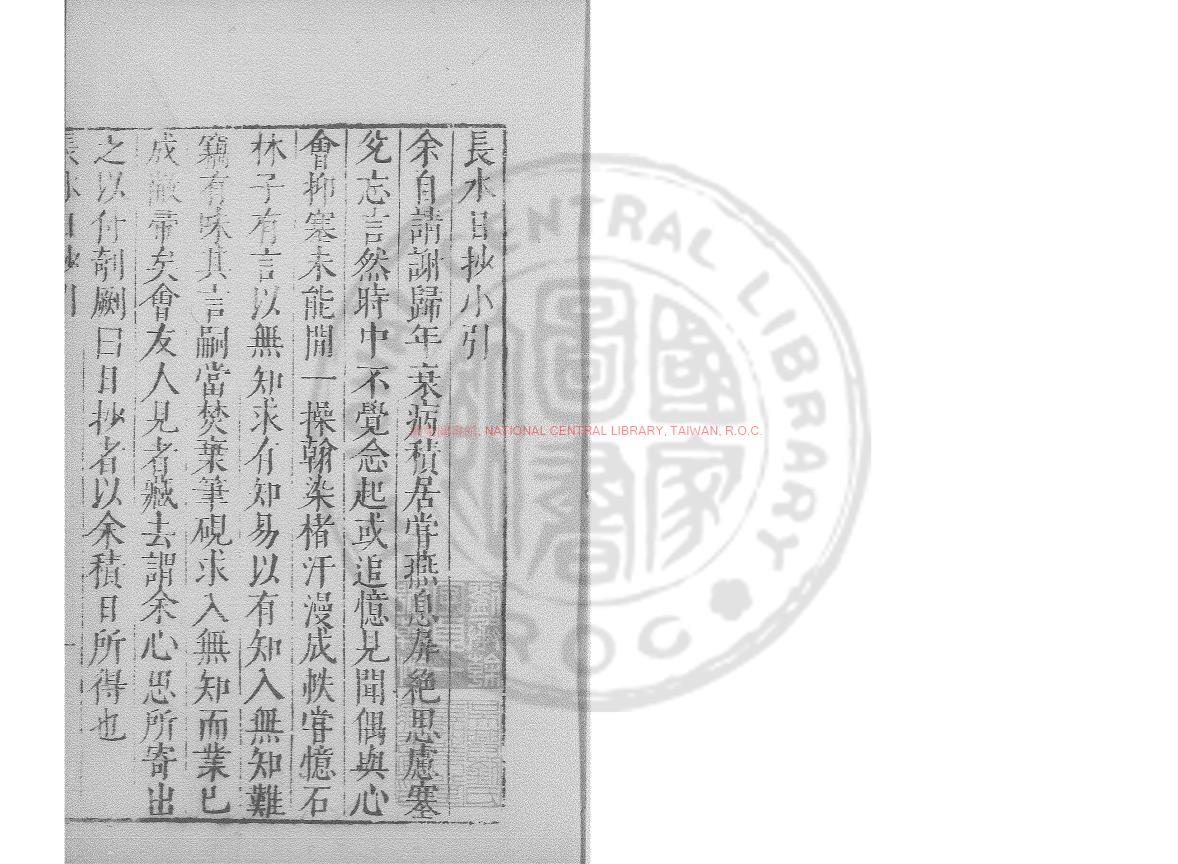 長水日抄小引
余自請謝歸年衰病積居嘗燕息屏絕思慮塞
兌忘言然時中不覺念起或追憶見聞偶與心
會抑塞未能閒一操翰染楮汗漫成帙嘗憶石
林子有言以無知求有知易以有知入無知難
竊有味其言嗣當焚棄筆硯求入無知而業已
成敝帚矣會友人見者藏去謂余心思所寄出
之以付剞劂曰日抄者以余積日所得也
長水日抄引
一
NATIONAL CENTRAL LIBRARY, TAIWAN, R.O.C.
CENTRAL LIBRARY
ROC
國家圖書